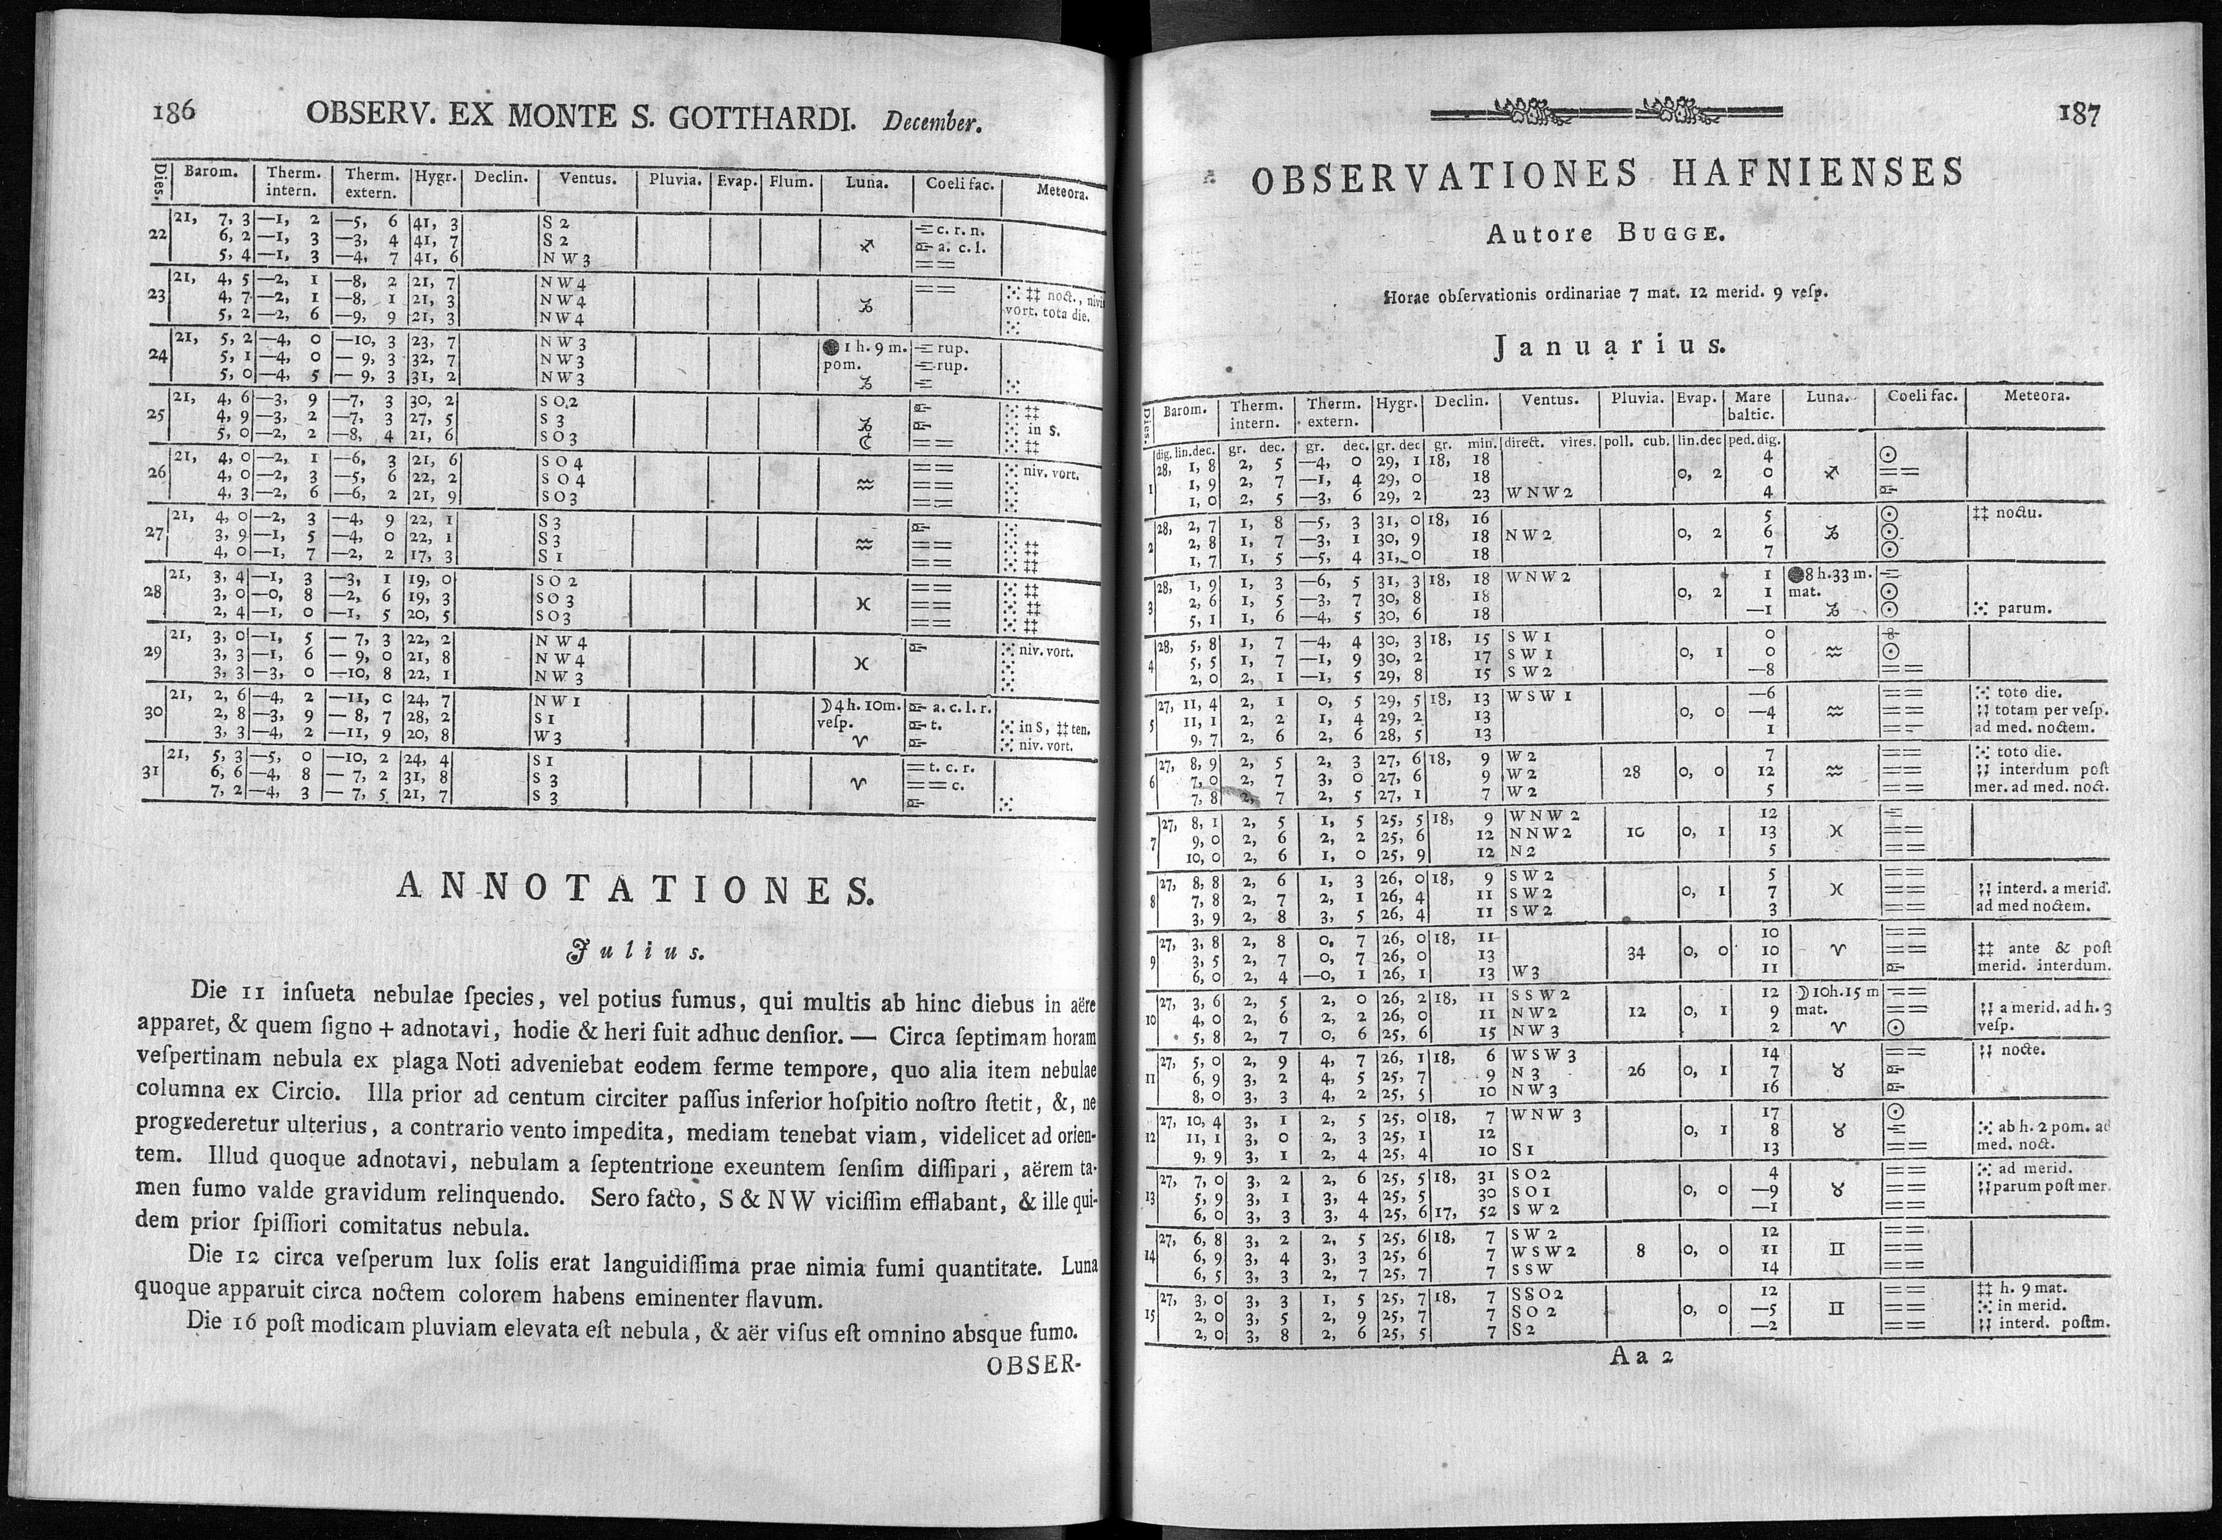 186 OBSERV. EX MONTE S. GOTTHARDI. December.
Dies. Barom. Therm. intern. Therm. extern. Hygr. Declin. Ventus. Pluvia. Evap. Flum. Luna. Coeli fac. Meteora.
21, 7, 3 —1, 2 —5, 6 41, 3 S 2 c. r. n.
22 6, 2 —1, 3 —3, 4 41, 7 S 2 ♐ a. c. l.
5, 4 —1, 3 —4, 7 41, 6 N W 3 ==
21, 4, 5 —2, 1 —8, 2 21, 7 N W 4 ==
23 4, 7 —2, 1 —8, 1 21, 3 N W 4 ♑ ⁙ ‡‡ noct., nivis
5, 2 —2, 6 —9, 9 21, 3 N W 4 vort. tota die. ⁙
21, 5, 2 —4, 0 —10, 3 23, 7 N W 3 ● 1 h. 9 m. rup.
24 5, 1 —4, 0 — 9, 3 32, 7 N W 3 pom. rup.
5, 0 —4, 5 — 9, 3 31, 2 N W 3 ♑ ⁙
21, 4, 6 —3, 9 —7, 3 30, 2 S O 2 ⁙ ‡‡
25 4, 9 —3, 2 —7, 3 27, 5 S 3 ♑ ⁙ in S.
5, 0 —2, 2 —8, 4 21, 6 S O 3 ☾ == ⁙ ‡‡
21, 4, 0 —2, 1 —6, 3 21, 6 S O 4 == ⁙ niv. vort.
26 4, 0 —2, 3 —5, 6 22, 2 S O 4 ♒ == ⁙
4, 3 —2, 6 —6, 2 21, 9 S O 3 == ⁙
21, 4, 0 —2, 3 —4, 9 22, 1 S 3 ⁙
27 3, 9 —1, 5 —4, 0 22, 1 S 3 ♒ == ⁙ ‡‡
4, 0 —1, 7 —2, 2 17, 3 S 1 == ⁙ ‡‡
21, 3, 4 —1, 3 —3, 1 19, 0 S O 2 == ⁙ ‡‡
28 3, 0 —0, 8 —2, 6 19, 3 S O 3 ♓ == ⁙ ‡‡
2, 4 —1, 0 —1, 5 20, 5 S O 3 == ⁙ ‡‡
21, 3, 0 —1, 5 — 7, 3 22, 2 N W 4 ⁙ niv. vort.
29 3, 3 —1, 6 — 9, 0 21, 8 N W 4 ♓ ⁙
3, 3 —3, 0 —10, 8 22, 1 N W 3 ⁙
21, 2, 6 —4, 2 —11, 0 24, 7 N W 1 ☽ 4 h. 10m. a. c. l. r.
30 2, 8 —3, 9 — 8, 7 28, 2 S 1 veſp. t. ⁙ in S, ‡‡ ten.
3, 3 —4, 2 —11, 9 20, 8 W 3 ♈ ⁙ niv. vort.
21, 5, 3 —5, 0 —10, 2 24, 4 S 1 == t. c. r.
31 6, 6 —4, 8 — 7, 2 31, 8 S 3 ♈ == c.
7, 2 —4, 3 — 7, 5 21, 7 S 3 ⁙
ANNOTATIONES.
Julius.
Die 11 inſueta nebulae ſpecies, vel potius fumus, qui multis ab hinc diebus in aëre
apparet, & quem ſigno + adnotavi, hodie & heri fuit adhuc denſior. — Circa ſeptimam horam
veſpertinam nebula ex plaga Noti adveniebat eodem ferme tempore, quo alia item nebulae
columna ex Circio. Illa prior ad centum circiter paſſus inferior hoſpitio noſtro ſtetit, &, ne
progrederetur ulterius, a contrario vento impedita, mediam tenebat viam, videlicet ad orien-
tem. Illud quoque adnotavi, nebulam a ſeptentrione exeuntem ſenſim diſſipari, aërem ta-
men fumo valde gravidum relinquendo. Sero facto, S & N W viciſſim efflabant, & ille qui-
dem prior ſpiſſiori comitatus nebula.
Die 12 circa veſperum lux ſolis erat languidiſſima prae nimia fumi quantitate. Luna
quoque apparuit circa noctem colorem habens eminenter flavum.
Die 16 poſt modicam pluviam elevata eſt nebula, & aër viſus eſt omnino absque fumo.
OBSER-
187
OBSERVATIONES HAFNIENSES
Autore BUGGE.
Horae obſervationis ordinariae 7 mat. 12 merid. 9 veſp.
Januarius.
Dies. Barom. Therm. intern. Therm. extern. Hygr. Declin. Ventus. Pluvia. Evap. Mare baltic. Luna. Coeli fac. Meteora.
dig. lin. dec. gr. dec. gr. dec. gr. dec gr. min. direct. vires. poll. cub. lin. dec ped. dig.
28, 1, 8 2, 5 —4, 0 29, 1 18, 18 4 ☉
1 1, 9 2, 7 —1, 4 29, 0 18 0, 2 0 ♐ ==
1, 0 2, 5 —3, 6 29, 2 23 W N W 2 4
28, 2, 7 1, 8 —5, 3 31, 0 18, 16 5 ☉ ‡‡ noctu.
2 2, 8 1, 7 —3, 1 30, 9 18 N W 2 0, 2 6 ♑ ☉
1, 7 1, 5 —5, 4 31, 0 18 7 ☉
28, 1, 9 1, 3 —6, 5 31, 3 18, 18 W N W 2 1 ● 8 h. 33 m.
3 2, 6 1, 5 —3, 7 30, 8 18 0, 2 1 mat. ☉
5, 1 1, 6 —4, 5 30, 6 18 —1 ♑ ☉ ⁙ parum.
28, 5, 8 1, 7 —4, 4 30, 3 18, 15 S W 1 0
4 5, 5 1, 7 —1, 9 30, 2 17 S W 1 0, 1 0 ♒ ☉
2, 0 2, 1 —1, 5 29, 8 15 S W 2 —8 ==
27, 11, 4 2, 1 0, 5 29, 5 18, 13 W S W 1 —6 == ⁙ toto die.
5 11, 1 2, 2 1, 4 29, 2 13 0, 0 —4 ♒ == totam per veſp.
9, 7 2, 6 2, 6 28, 5 13 1 == ad med. noctem.
27, 8, 9 2, 5 2, 3 27, 6 18, 9 W 2 7 == ⁙ toto die.
6 7, 0 2, 7 3, 0 27, 6 9 W 2 28 0, 0 12 ♒ == interdum poſt
7, 8 2, 7 2, 5 27, 1 7 W 2 5 == mer. ad med. noct.
27, 8, 1 2, 5 1, 5 25, 5 18, 9 W N W 2 12
7 9, 0 2, 6 2, 2 25, 6 12 N N W 2 10 0, 1 13 ♓ ==
10, 0 2, 6 1, 0 25, 9 12 N 2 5 ==
27, 8, 8 2, 6 1, 3 26, 0 18, 9 S W 2 5 ==
8 7, 8 2, 7 2, 1 26, 4 11 S W 2 0, 1 7 ♓ == interd. a merid.
3, 9 2, 8 3, 5 26, 4 11 S W 2 3 == ad med noctem.
27, 3, 8 2, 8 0, 7 26, 0 18, 11 10 ==
9 3, 5 2, 7 0, 7 26, 0 13 34 0, 0 10 ♈ == ‡‡ ante & poſt
6, 0 2, 4 —0, 1 26, 1 13 W 3 11 merid. interdum.
27, 3, 6 2, 5 2, 0 26, 2 18, 11 S S W 2 12 ☽ 10h. 15 m ==
10 4, 0 2, 6 2, 2 26, 0 11 N W 2 12 0, 1 9 mat. == a merid. ad h. 3
5, 8 2, 7 0, 6 25, 6 15 N W 3 2 ♈ ☉ veſp.
27, 5, 0 2, 9 4, 7 26, 1 18, 6 W S W 3 14 == nocte.
11 6, 9 3, 2 4, 5 25, 7 9 N 3 26 0, 1 7 ♉
8, 0 3, 3 4, 2 25, 5 10 N W 3 16
27, 10, 4 3, 1 2, 5 25, 0 18, 7 W N W 3 17 ☉
12 11, 1 3, 0 2, 3 25, 1 12 0, 1 8 ♉ ⁙ ab h. 2 pom. ad
9, 9 3, 1 2, 4 25, 4 10 S 1 13 == med. noct.
27, 7, 0 3, 2 2, 6 25, 5 18, 31 S O 2 4 == ⁙ ad merid.
13 5, 9 3, 1 3, 4 25, 5 30 S O 1 0, 0 —9 ♉ == parum poſt mer.
6, 0 3, 3 3, 4 25, 6 17, 52 S W 2 —1 ==
27, 6, 8 3, 2 2, 5 25, 6 18, 7 S W 2 12 ==
14 6, 9 3, 4 3, 3 25, 6 7 W S W 2 8 0, 0 11 ♊ ==
6, 5 3, 3 2, 7 25, 7 7 S S W 14 ==
27, 3, 0 3, 3 1, 5 25, 7 18, 7 S S O 2 12 == ‡‡ h. 9 mat.
15 2, 0 3, 5 2, 9 25, 7 7 S O 2 0, 0 —5 ♊ == ⁙ in merid.
2, 0 3, 8 2, 6 25, 5 7 S 2 —2 == interd. poſtm.
A a 2